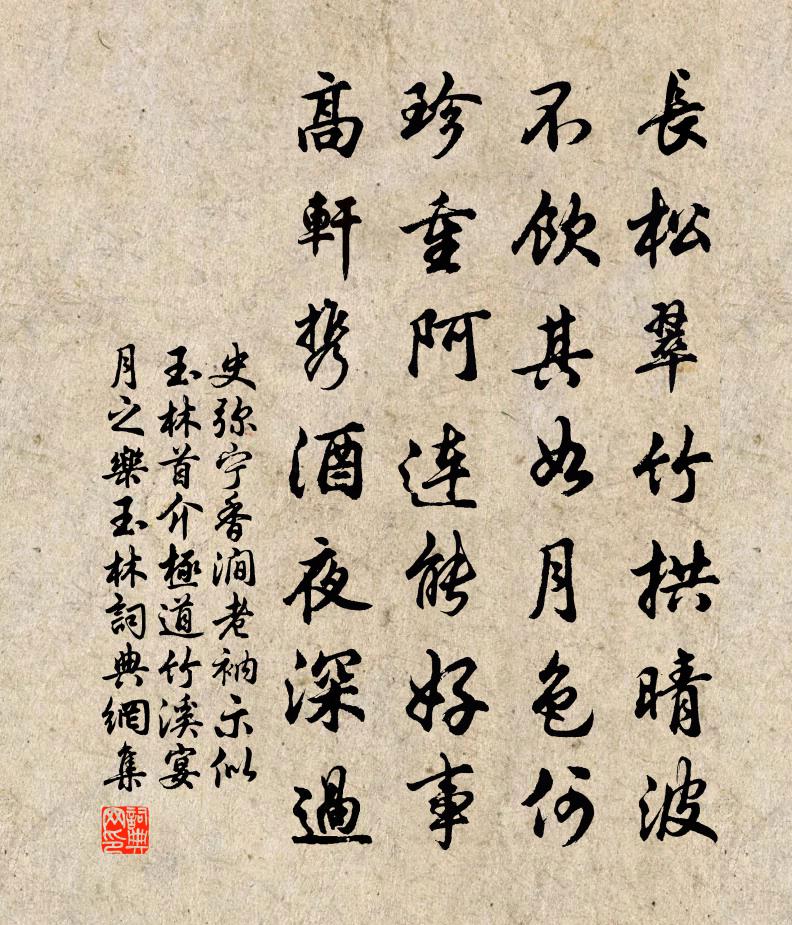 長松翠竹拱晴波
不飲其如月色何
珍重阿連能好事
高軒携酒夜深過
史弥宁香澗老衲示似
玉林首介極道竹溪宴
月之樂玉林詞典網集
詞典網印